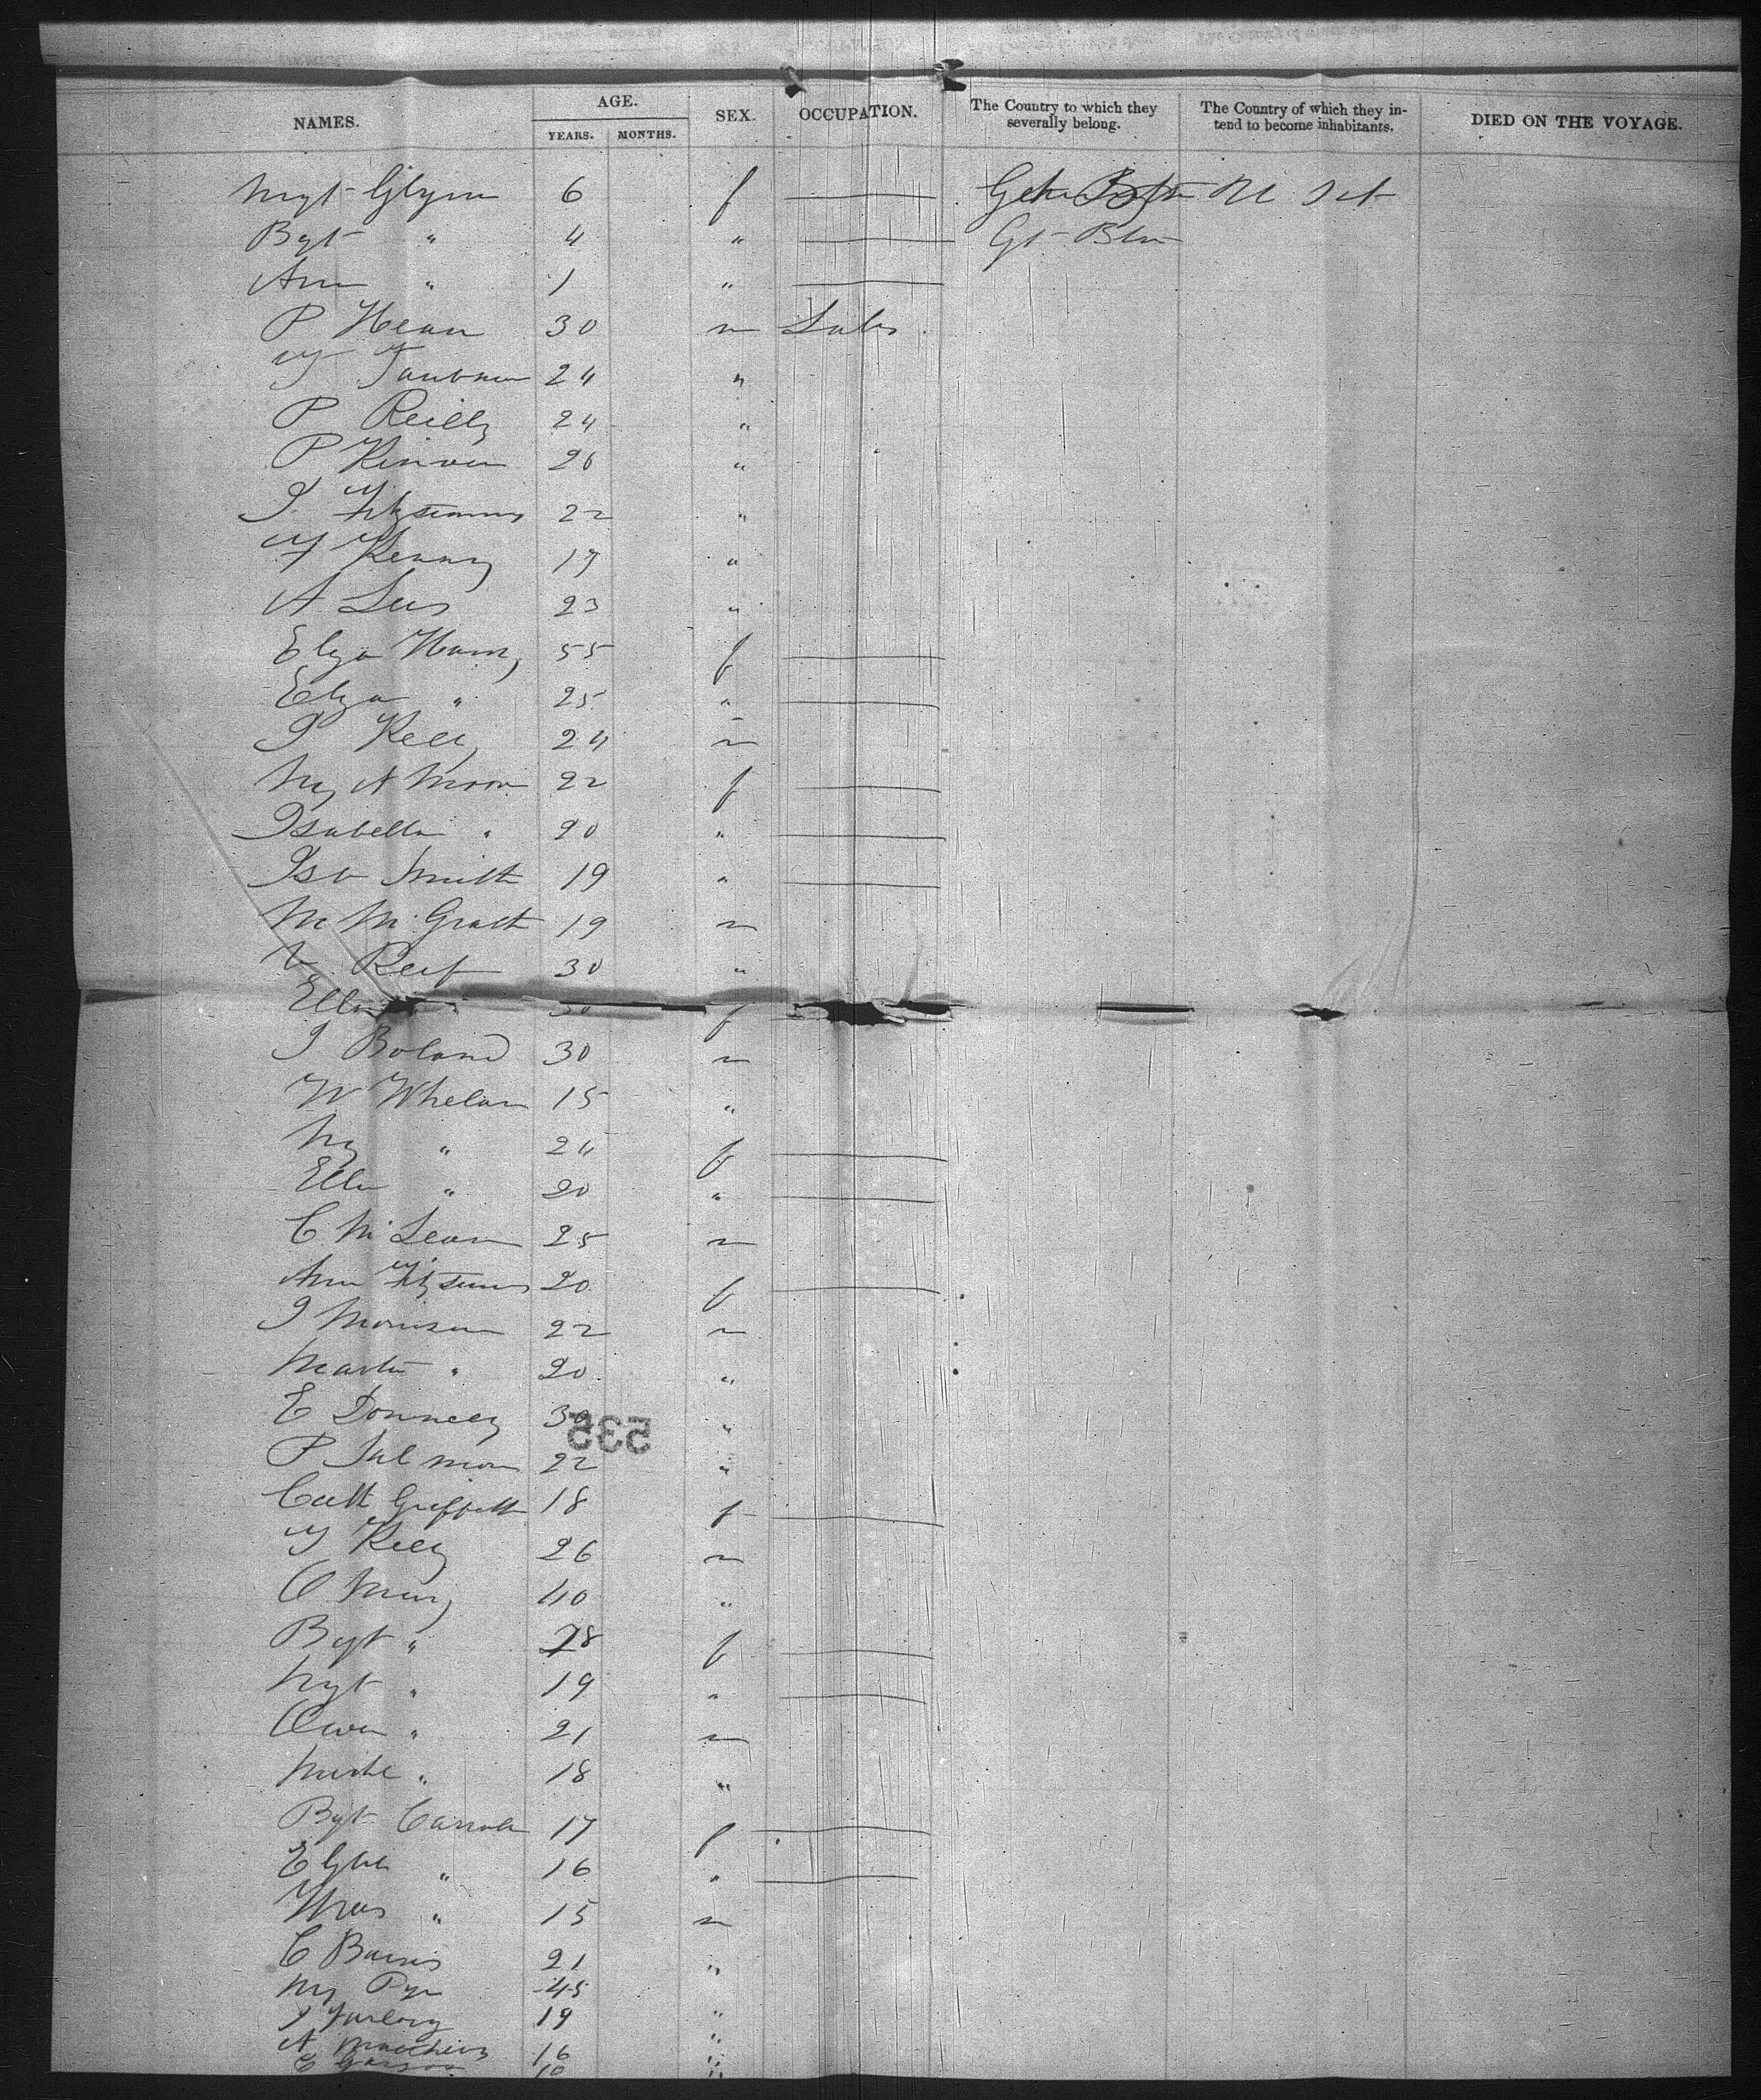 NAMES. AGE. SEX. OCCUPATION. The Country to which they severally belong. The Country of which they intend to become inhabitants. DIED ON THE VOYAGE.
YEARS. MONTHS.
Mgt Glynn 6 f
Bgt " 4 " Gt Btn
Ann " 1 "
P Hean 30 m Labr
24 "
P Reilly 24 "
P Kinven 26 "
J. Fitzsimmns 22 "
Kenny 17 "
A Lees 23 "
Eliza 55 f
Eliza " 25 "
J Kelly 24 m
My A Moore 22 f
Isabella " 20 "
Isa Smith 19 "
M McGrath 19 m
30 "
Ellen f
J Boland 30 m
W Whelan 15 "
My " 24 f
Ellen " 20 "
C McLean 25 m
Ann Fitzsimns 20 f
J Morrison 22 m
Martin " 20 "
E Donnelly 30 "
535
P Salmon 22 "
Cath Griffith 18 f
T Kelly 26 m
O 40 "
Bgt " 28 f
Mgt " 19 "
Owen " 21 m
Michl " 18 "
Bgt Carroll 17 f
16 "
Thos " 15 m
C Burns 21 "
My Pye 45 "
J Furlong 19 "
A 16 "
C 10 "